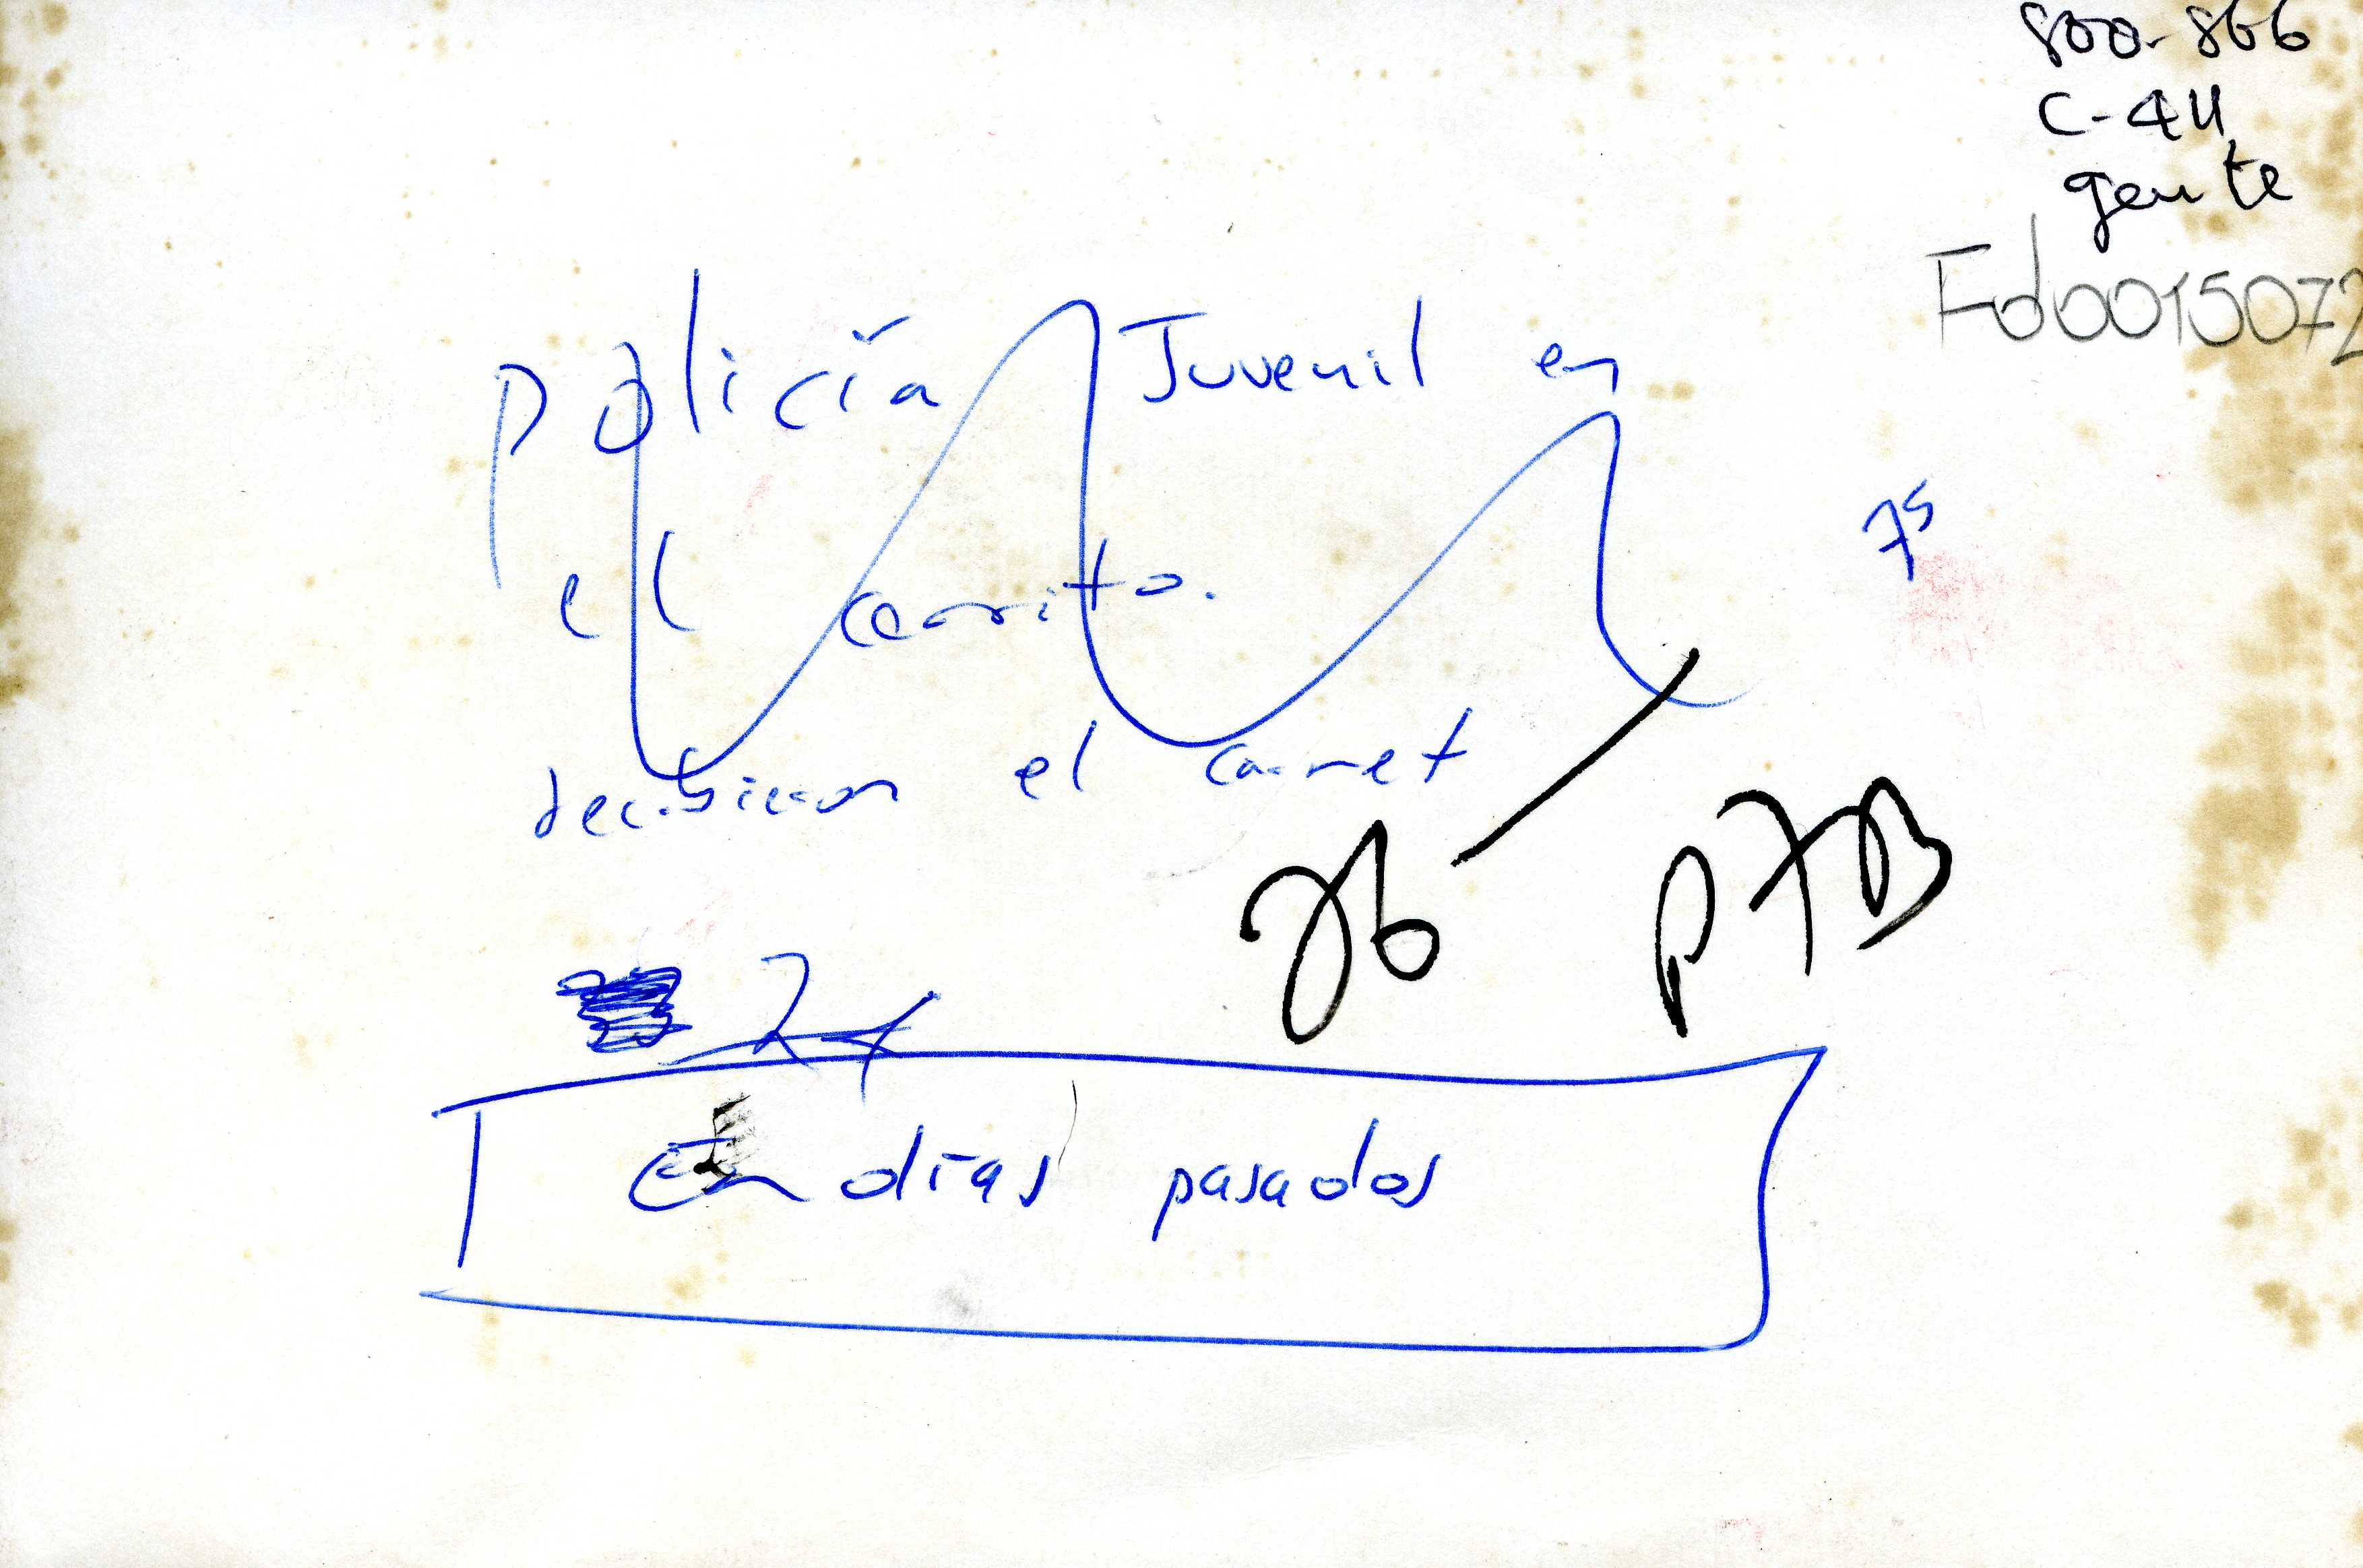 800-866
C-44
gente
Fd0015072
Policía Juvenil en
75
el cerrito.
recibieron el carnet
26
P7B
24
En días pasados